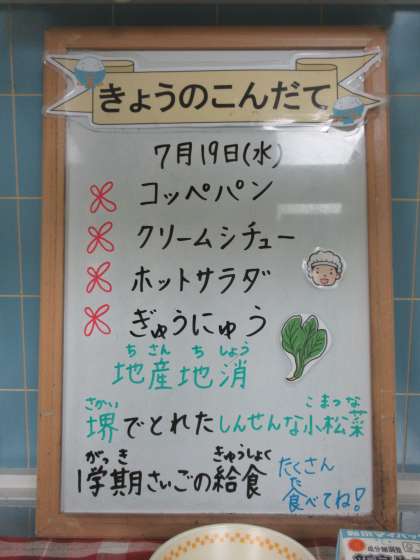 きょうのこんだて
7月19日(水)
コッペパン
クリームシチュー
ホットサラダ
ぎゅうにゅう
ちさんちしょう
地産地消
さかい こまつな
堺でとれたしんせんな小松菜
がっき きゅうしょく
1学期さいごの給食
たくさん
食べてね!